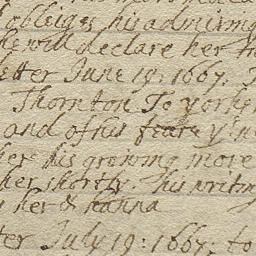 obleiges his admiring
he will declare her
letter June 19: 1667.
Thornton To yorke
and of his feare yt
her his growing more
her shortly. his writing
her & hanna
ter July 19: 1667: to